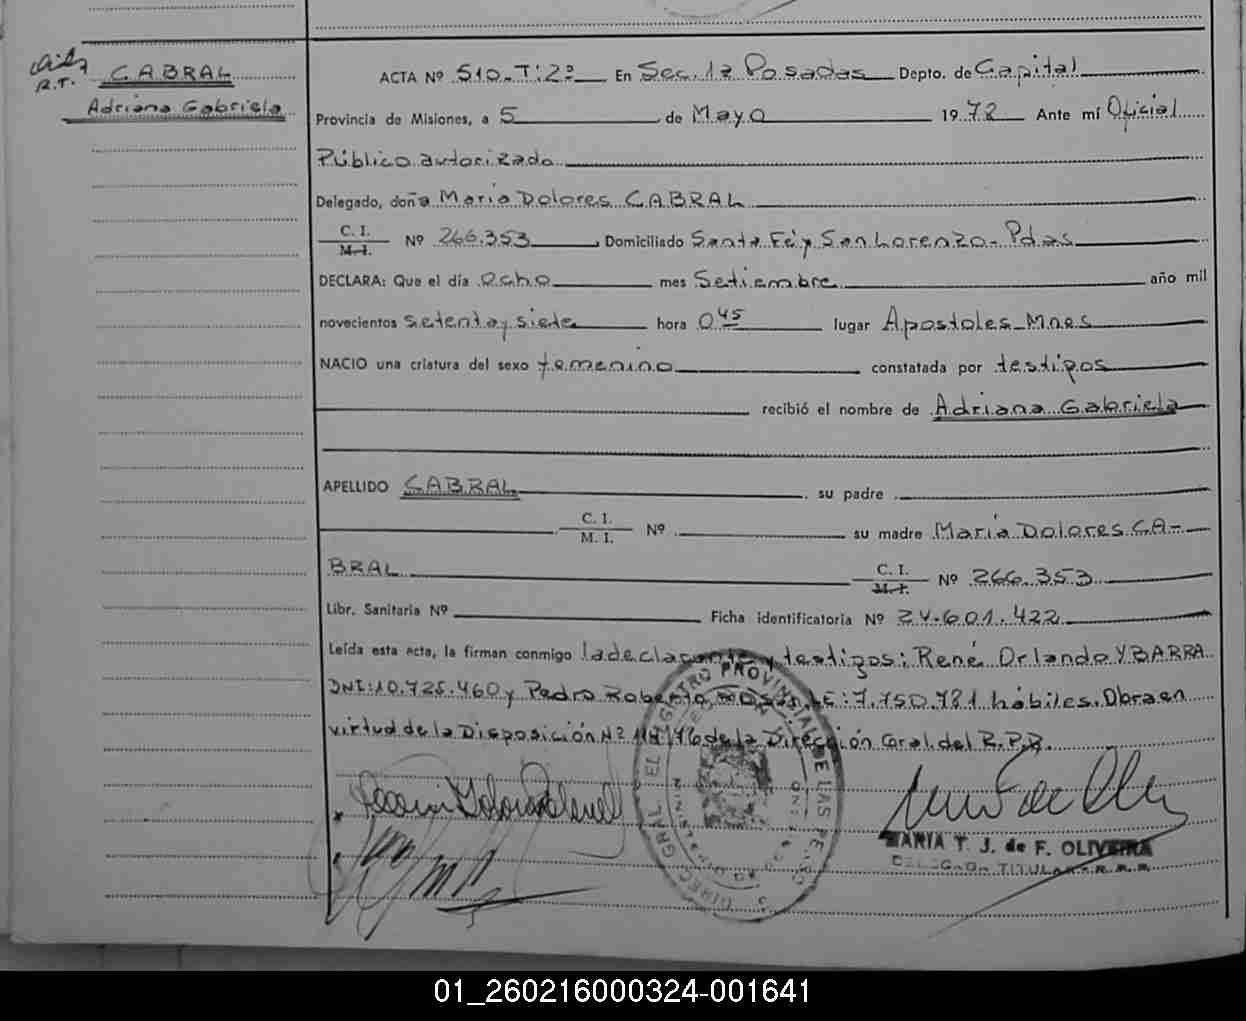 R.T.
CABRAL
Adriana Gabriela
ACTA Nº 510-T:2º En Sec. 1ª Posadas Depto. de Capital
Provincia de Misiones, a 5 de Mayo 1978 Ante mí Oficial
Público autorizado
Delegado, doña María Dolores CABRAL
C. I.
M. I. Nº 266.353 Domiciliado Santa Fé y San Lorenzo - Pdas
DECLARA: Que el día Ocho mes Setiembre año mil
novecientos setenta y siete hora 0 45 lugar Apostoles - Mnes
NACIO una criatura del sexo femenino constatada por testigos
recibió el nombre de Adriana Gabriela
APELLIDO CABRAL su padre
C. I.
M. I. Nº su madre María Dolores CA-
BRAL C. I.
M. I. Nº 266.353
Libr. Sanitaria Nº Ficha identificatoria Nº 24.601.422
Leída esta acta, la firman conmigo la declarante y testigos: René Orlando YBARRA
DNI: 10.725.460 y Pedro Roberto LE: 7.750.781 hábiles. Obra en
virtud de la Disposición Nº 76 de la Dirección Gral. del R.P.P.
DIREC. GRAL. EL REGISTRO PROVINCIAL DE LAS PERSO
MARIA T. J. de F. OLIVEIRA
DELEGADA TITULAR - R.P.P.
01_260216000324-001641